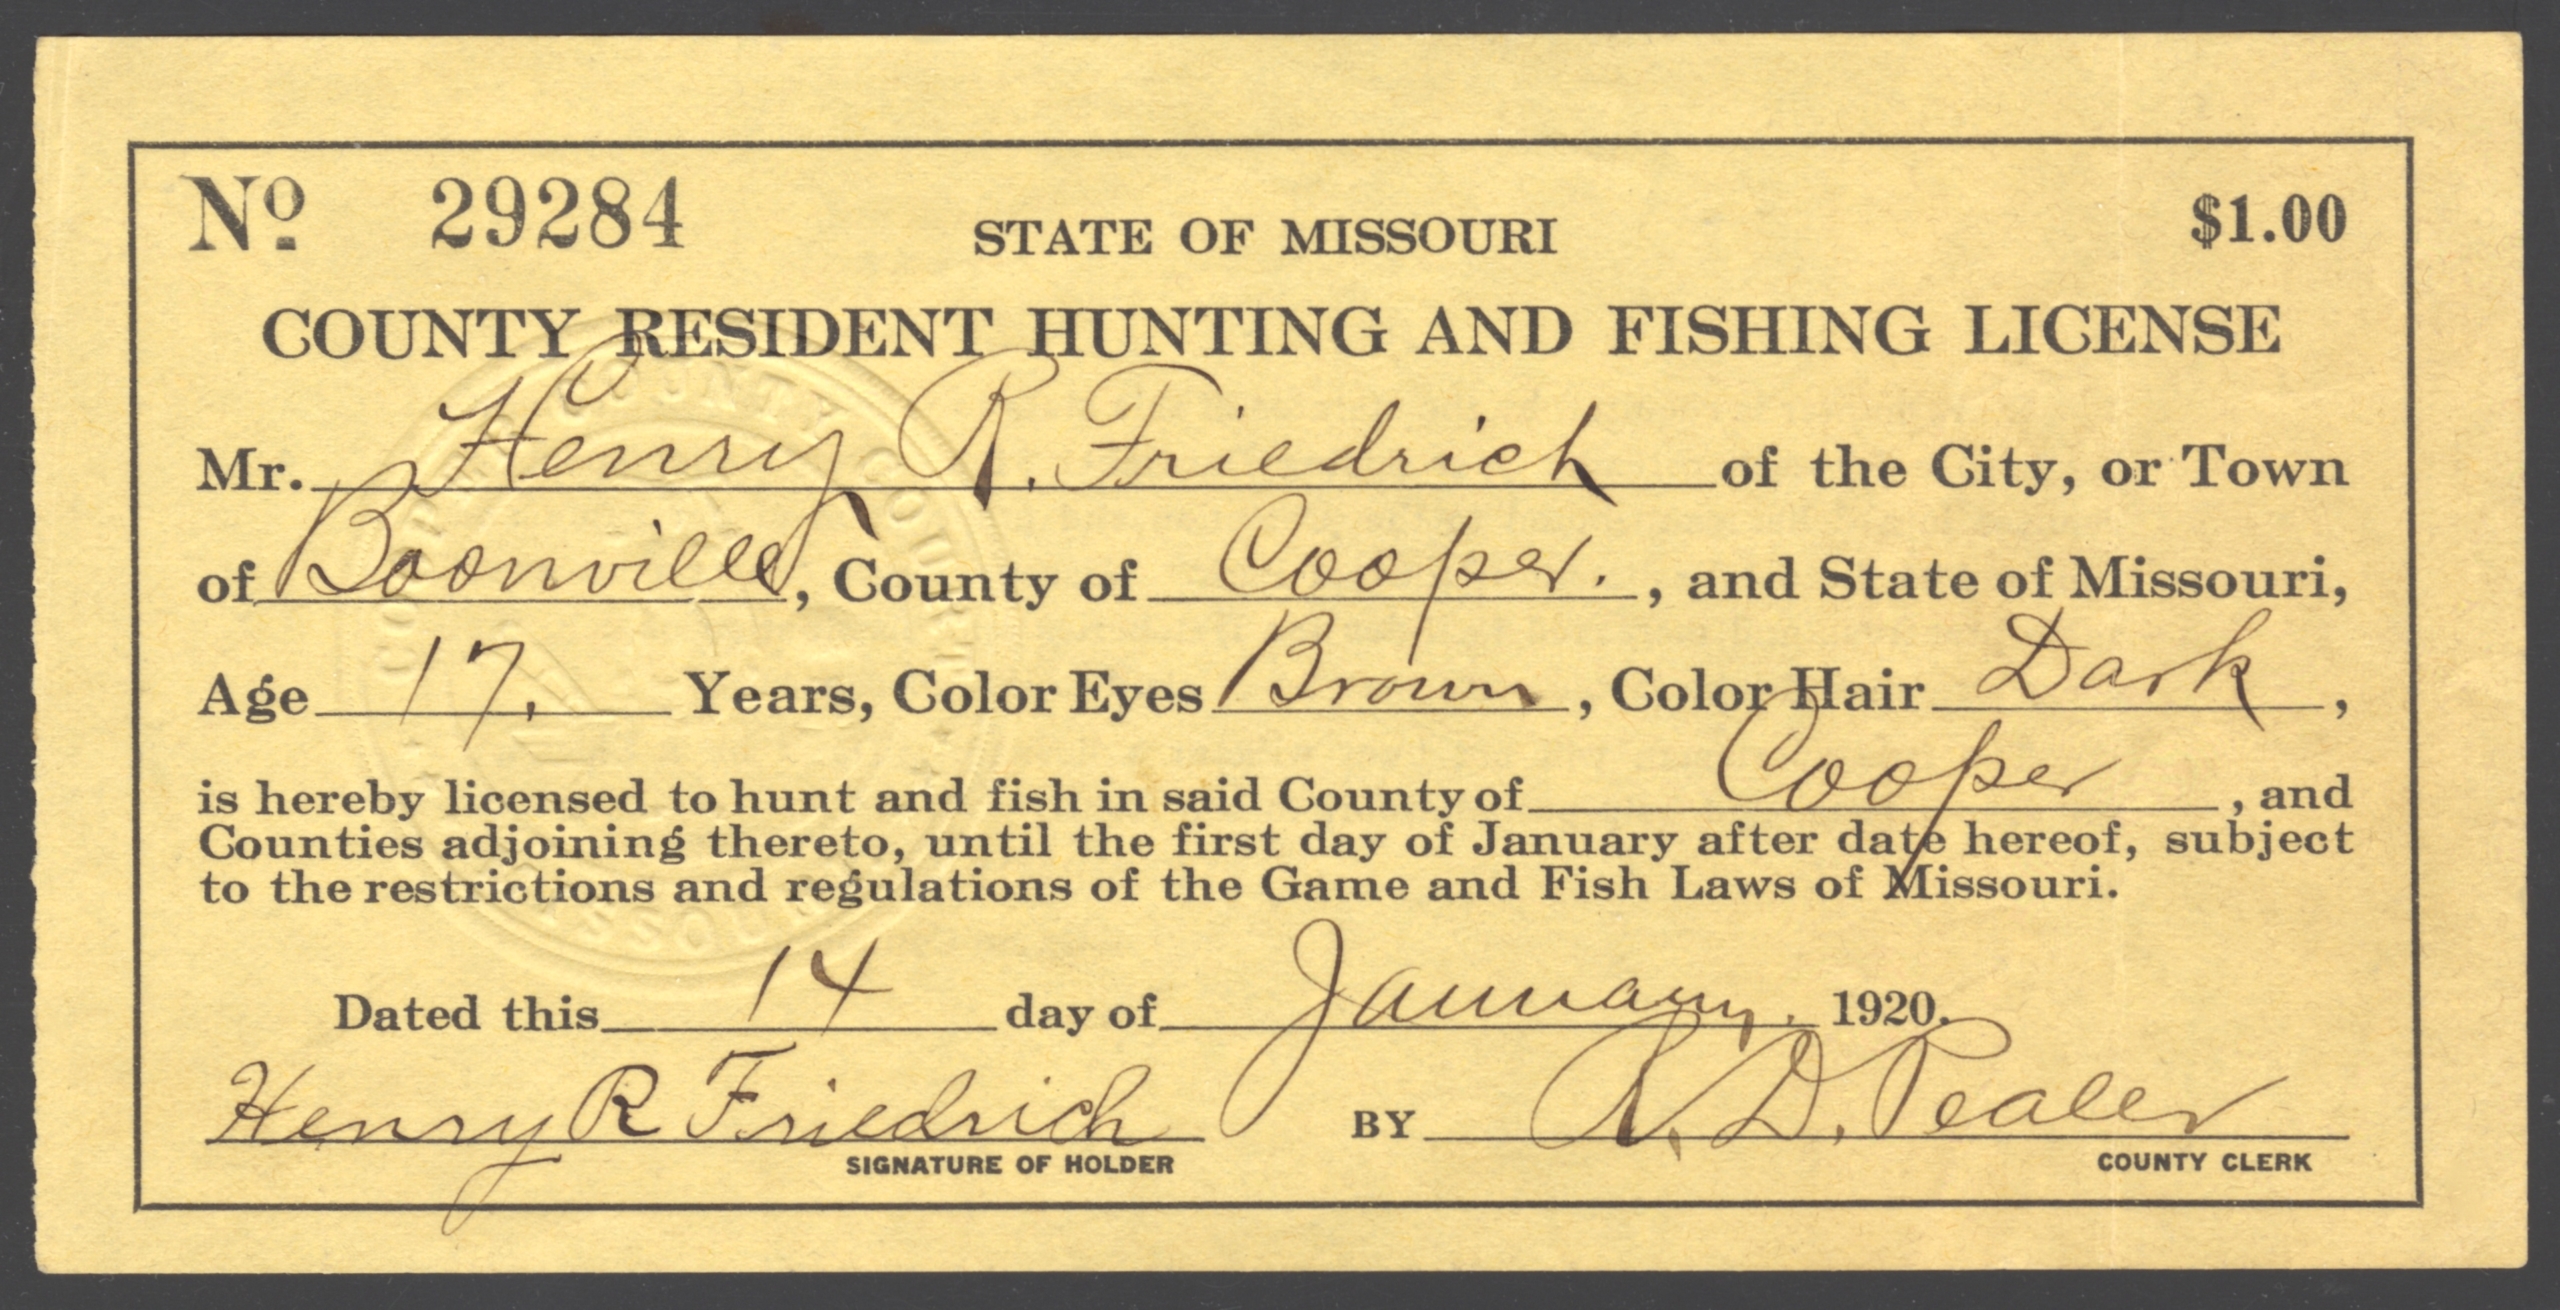 No 29284 STATE OF MISSOURI $1.00
COUNTY RESIDENT HUNTING AND FISHING LICENSE
Mr. Henry R. Friedrich of the City, or Town
of Boonville, County of Cooper. , and State of Missouri,
Age 17. Years, Color Eyes Brown , Color Hair Dark ,
is hereby licensed to hunt and fish in said County of Cooper , and
Counties adjoining thereto, until the first day of January after date hereof, subject
to the restrictions and regulations of the Game and Fish Laws of Missouri.
Dated this 14 day of January. 1920.
Henry R Friedrich BY R. D. Pealer
SIGNATURE OF HOLDER COUNTY CLERK
COOPER COUNTY COURT
MISSOURI